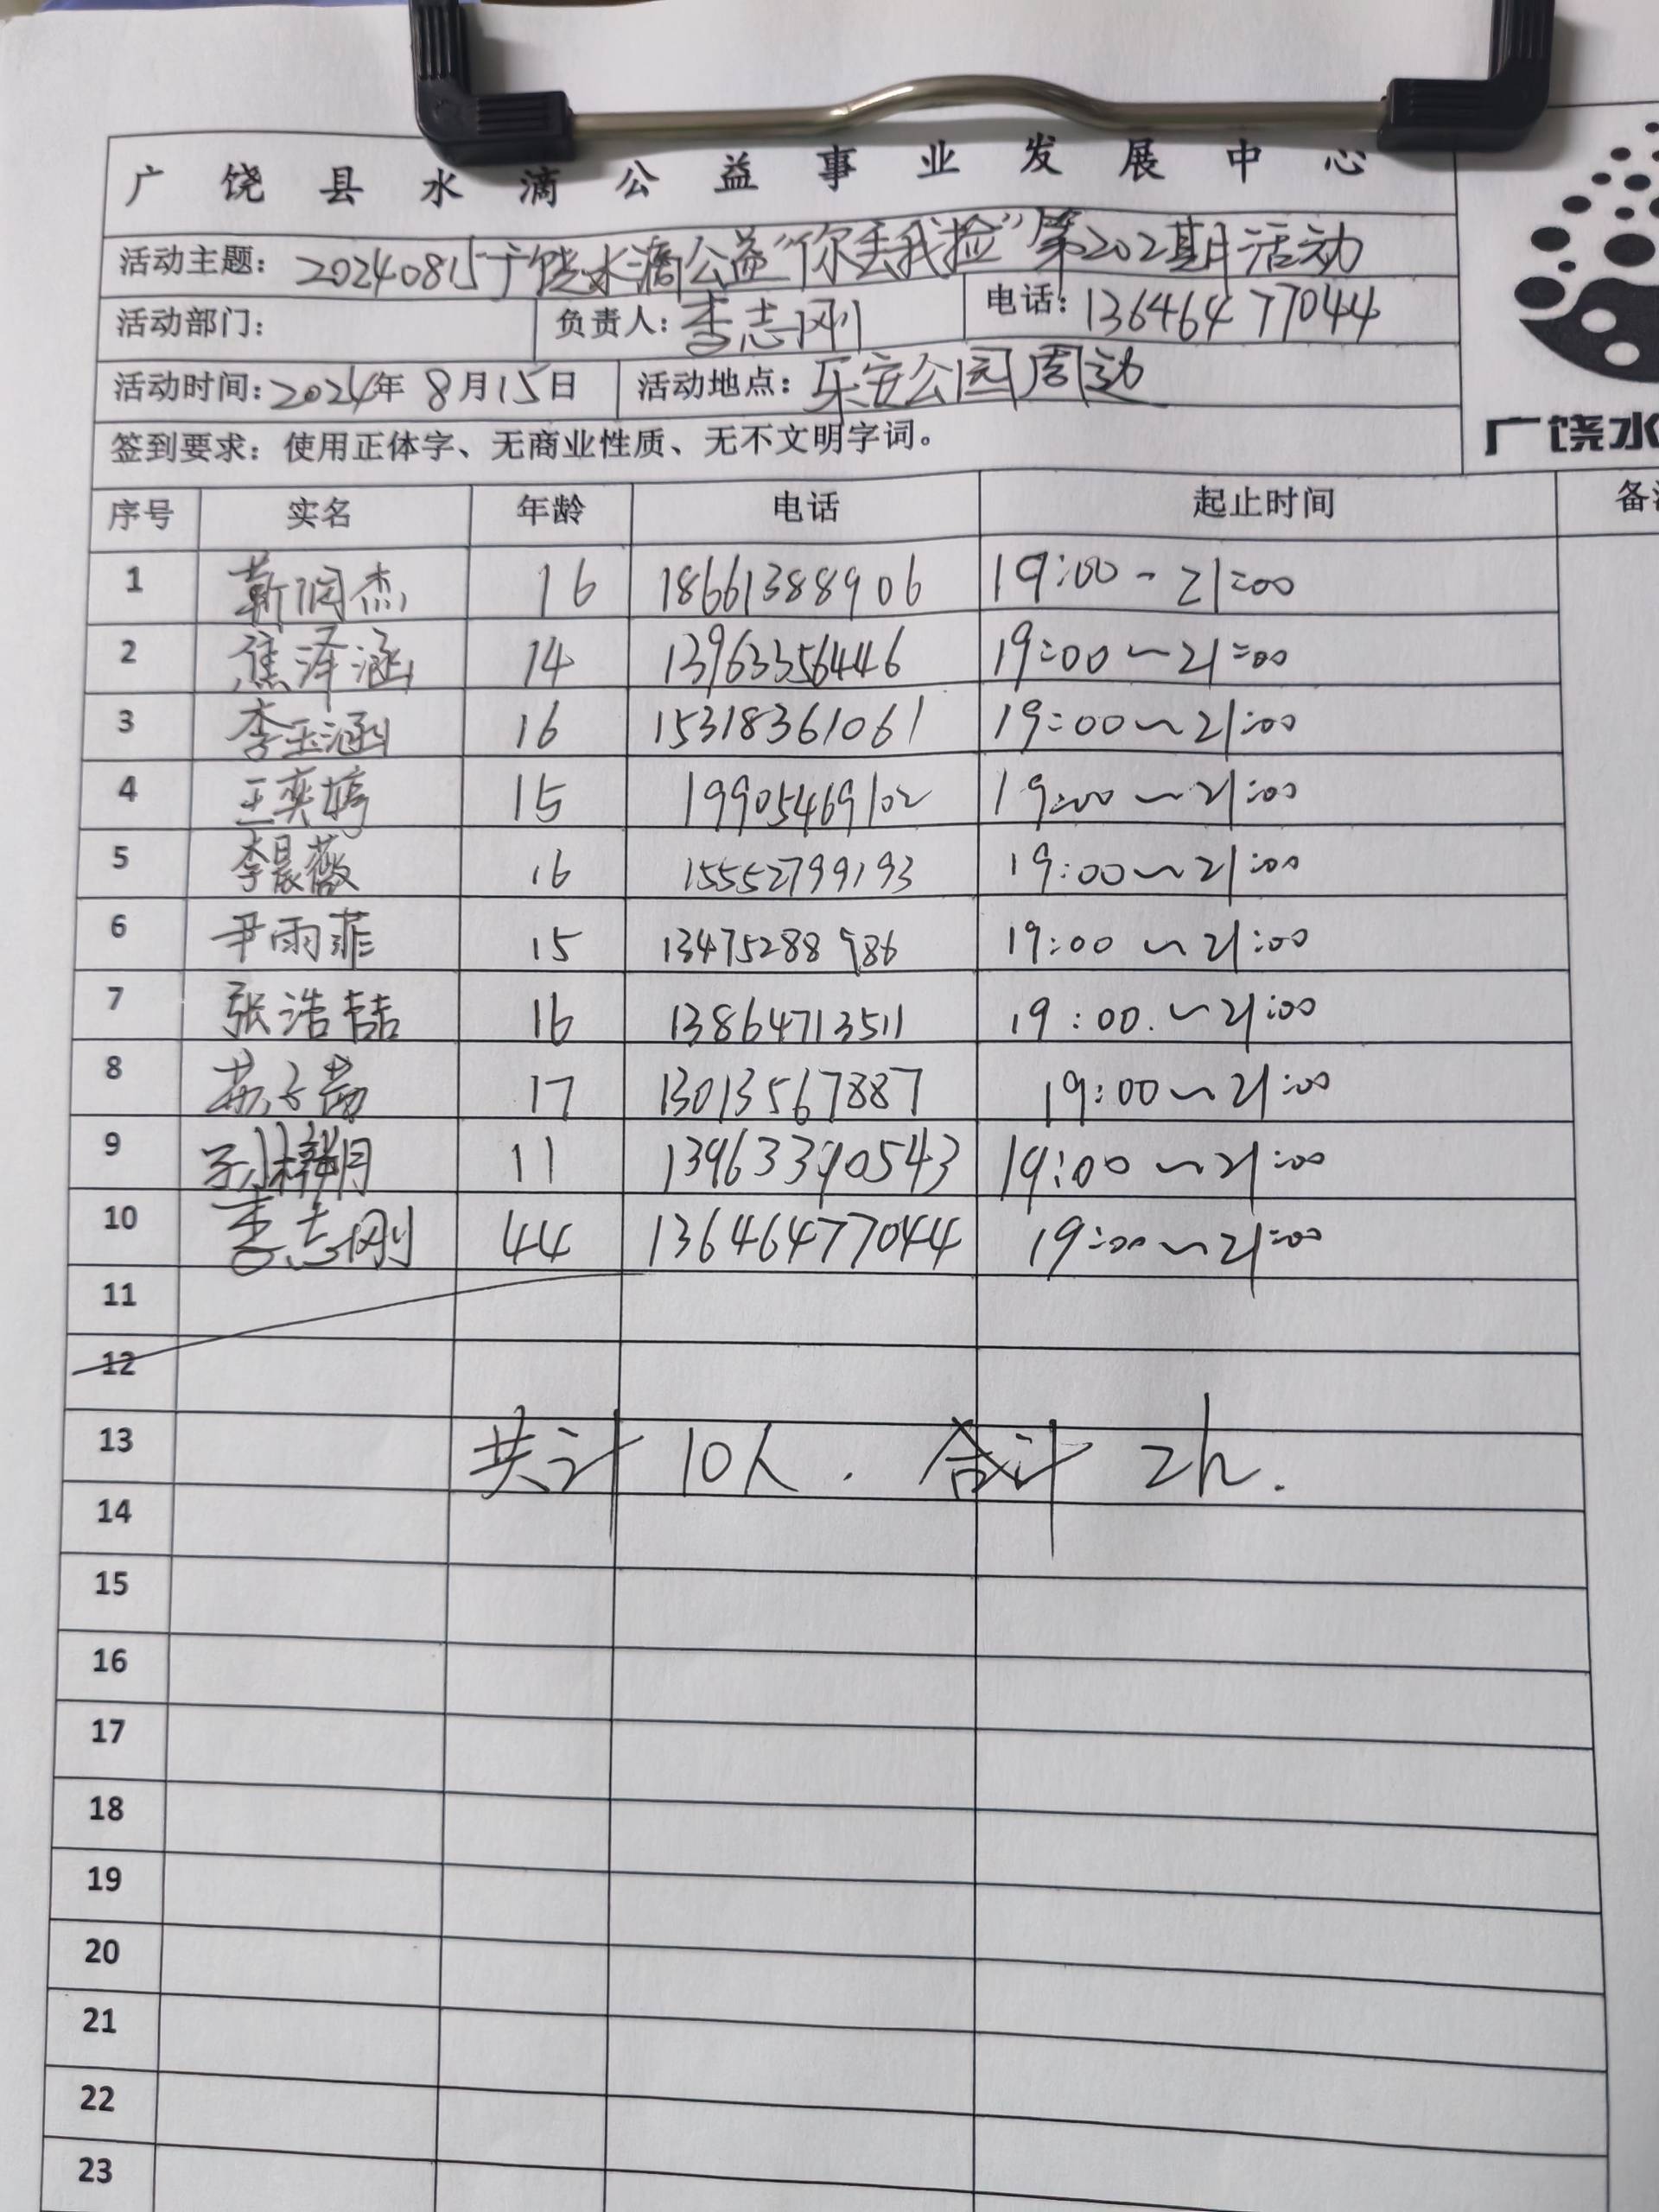 广饶县水滴公益事业发展中心
活动主题：20240815广饶水滴公益“你丢我捡”第202期活动
活动部门： 负责人：李志刚 电话：13646477044
活动时间：2024年8月15日 活动地点：乐安公园周边
广饶水
签到要求：使用正体字、无商业性质、无不文明字词。
序号 实名 年龄 电话 起止时间 备
1 靳润杰 16 18661388906 19:00-21:00
2 焦泽涵 14 13963356446 19:00~21:00
3 李玉涵 16 15318361061 19:00~21:00
4 王奕婷 15 19905469102 19:00~21:00
5 李晨薇 16 15552799193 19:00~21:00
6 尹雨菲 15 13475288986 19:00~21:00
7 张浩喆 16 13864713511 19:00~21:00
8 17 13013567887 19:00~21:00
9 11 13963390543 19:00~21:00
10 李志刚 44 13646477044 19:00~21:00
11
12
13 共计10人. 合计2h.
14
15
16
17
18
19
20
21
22
23